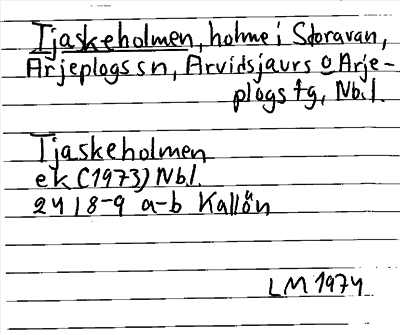 Tjaskeholmen, holme i Storavan,
Arjeplogs sn, Arvidsjaurs o Arje-
plogs tg, Nb.l.
Tjaskeholmen
ek (1973) Nb.l.
24 I 8-9 a-b Kallön
LM 1974